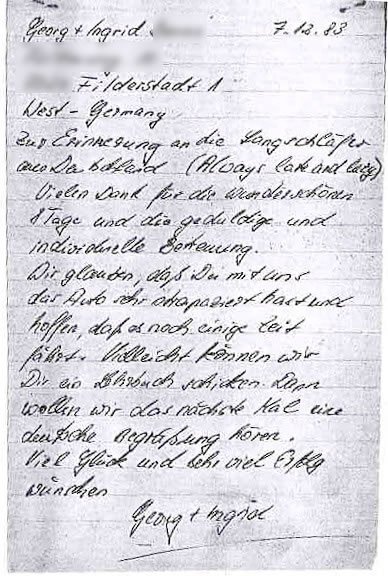 Georg + Ingrid
7-12.83
Filderstadt 1
West-Germany
Zur Erinnerung an die Langschläfer
aus Deutschland (Always late and lazy)
Vielen Dank für die wunderschönen
8 Tage und die geduldige und
individuelle Betreuung.
Wir glauben, daß Du mit uns
das Auto sehr strapaziert hast und
hoffen, daß es noch einige Zeit
fährt. Vielleicht können wir
Dir ein Lehrbuch schicken. Dann
wollen wir das nächste Mal eine
deutsche Begrüßung hören.
Viel Glück und sehr viel Erfolg
wünschen
Georg + Ingrid